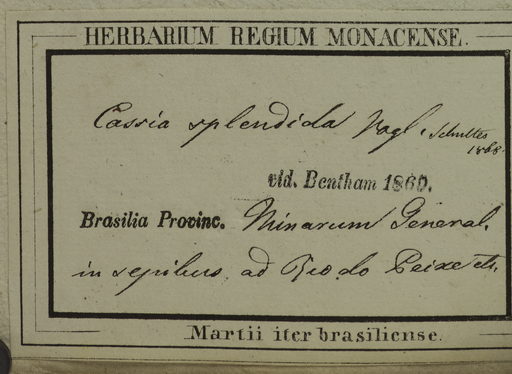 HERBARIUM REGIUM MONACENSE.
Cassia splendida Vogl. Schultes
1868
vid. Bentham 1869.
Brasilia Provinc. Minarum General.
in sepibus ad Rio do Peixe etc.
Martii iter brasiliense.